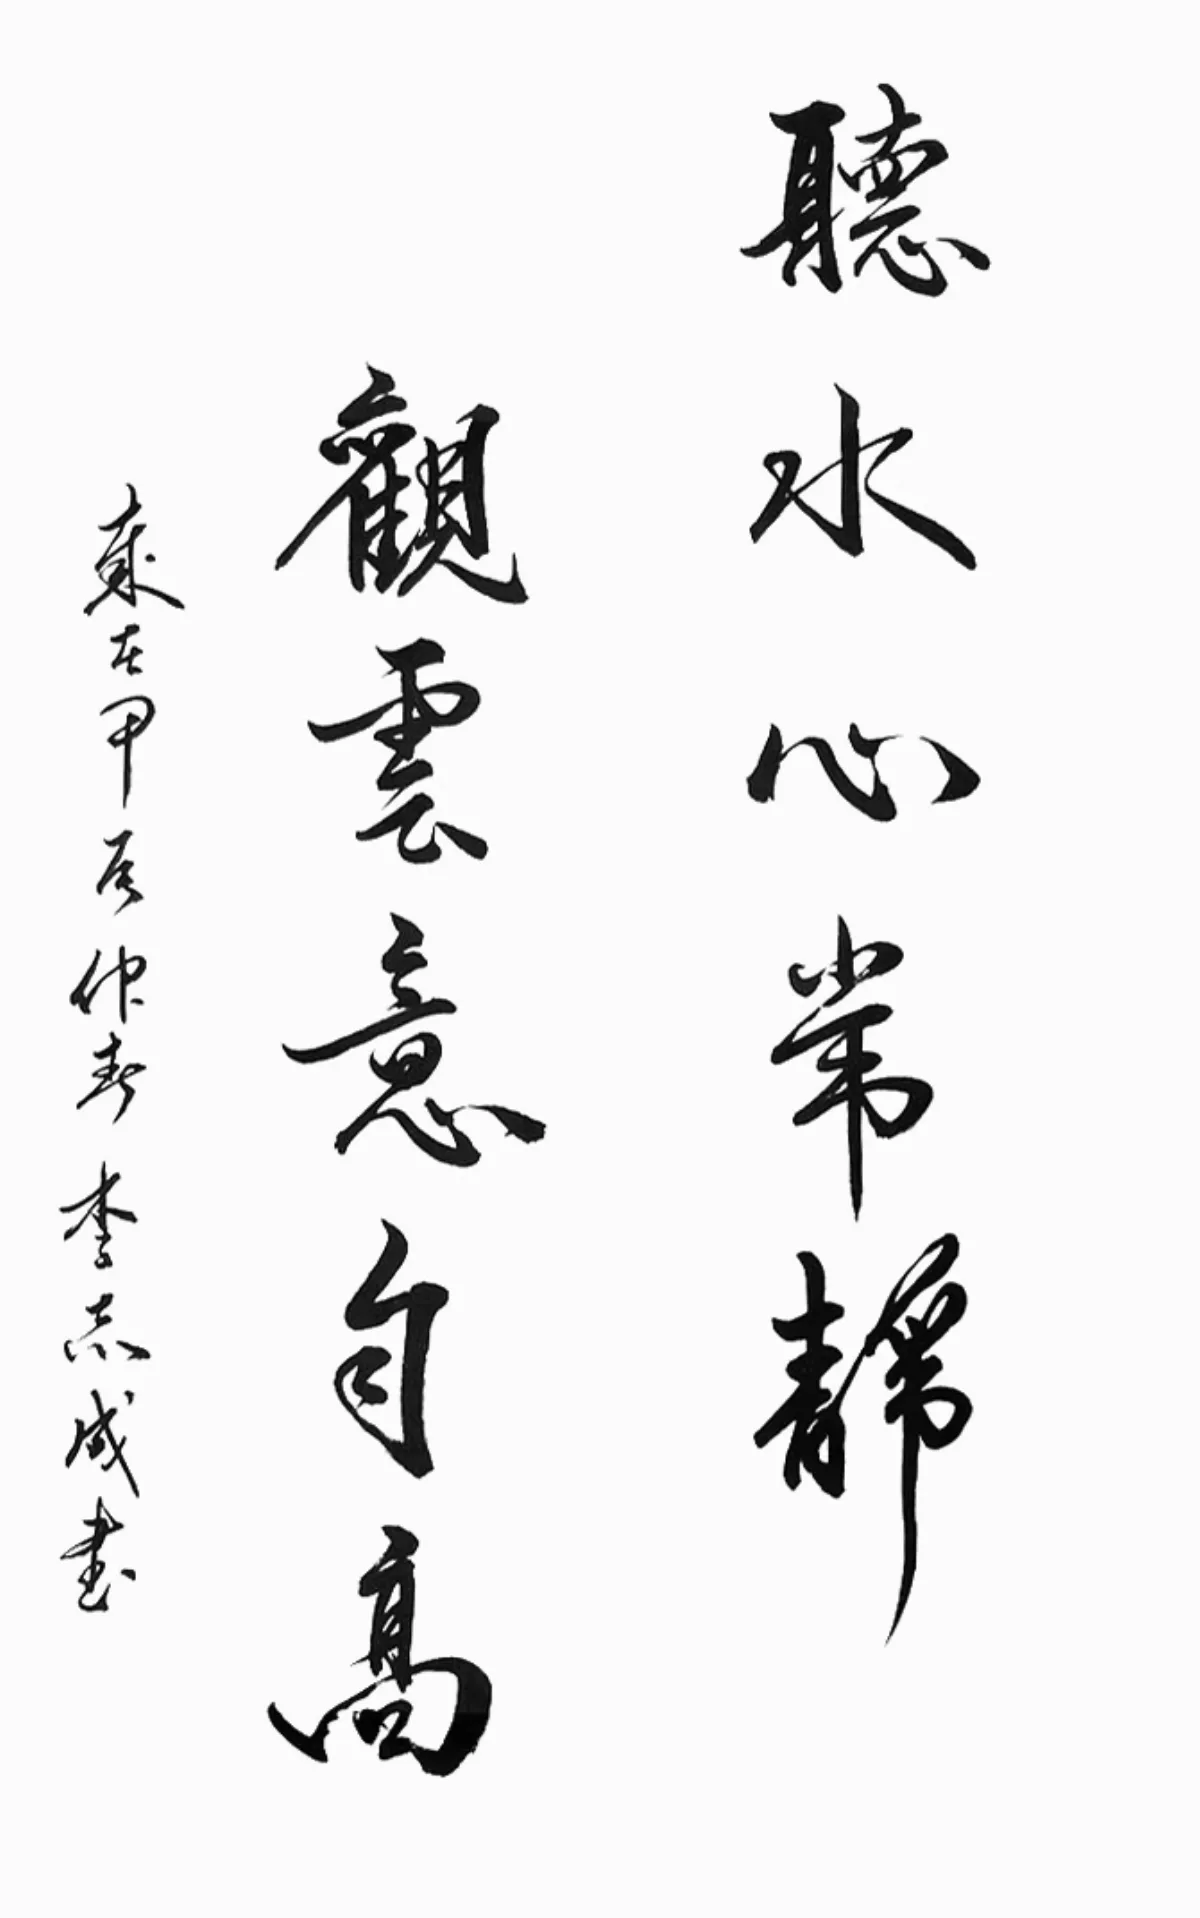 聽水心常靜
觀雲意自高
歲在甲辰仲春 李志成書